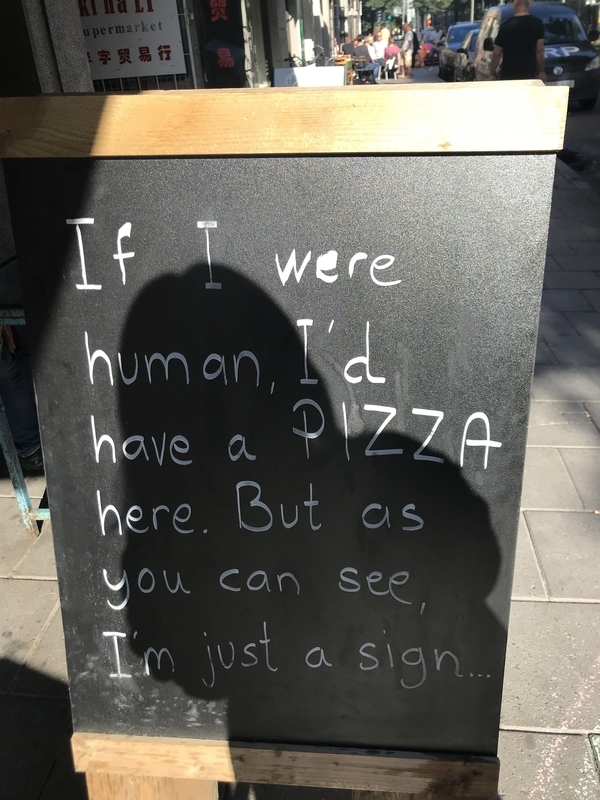 upermarket
字贸易行
贸
易
If I were
human, I'd
have a PIZZA
here. But as
you can see,
I'm just a sign...